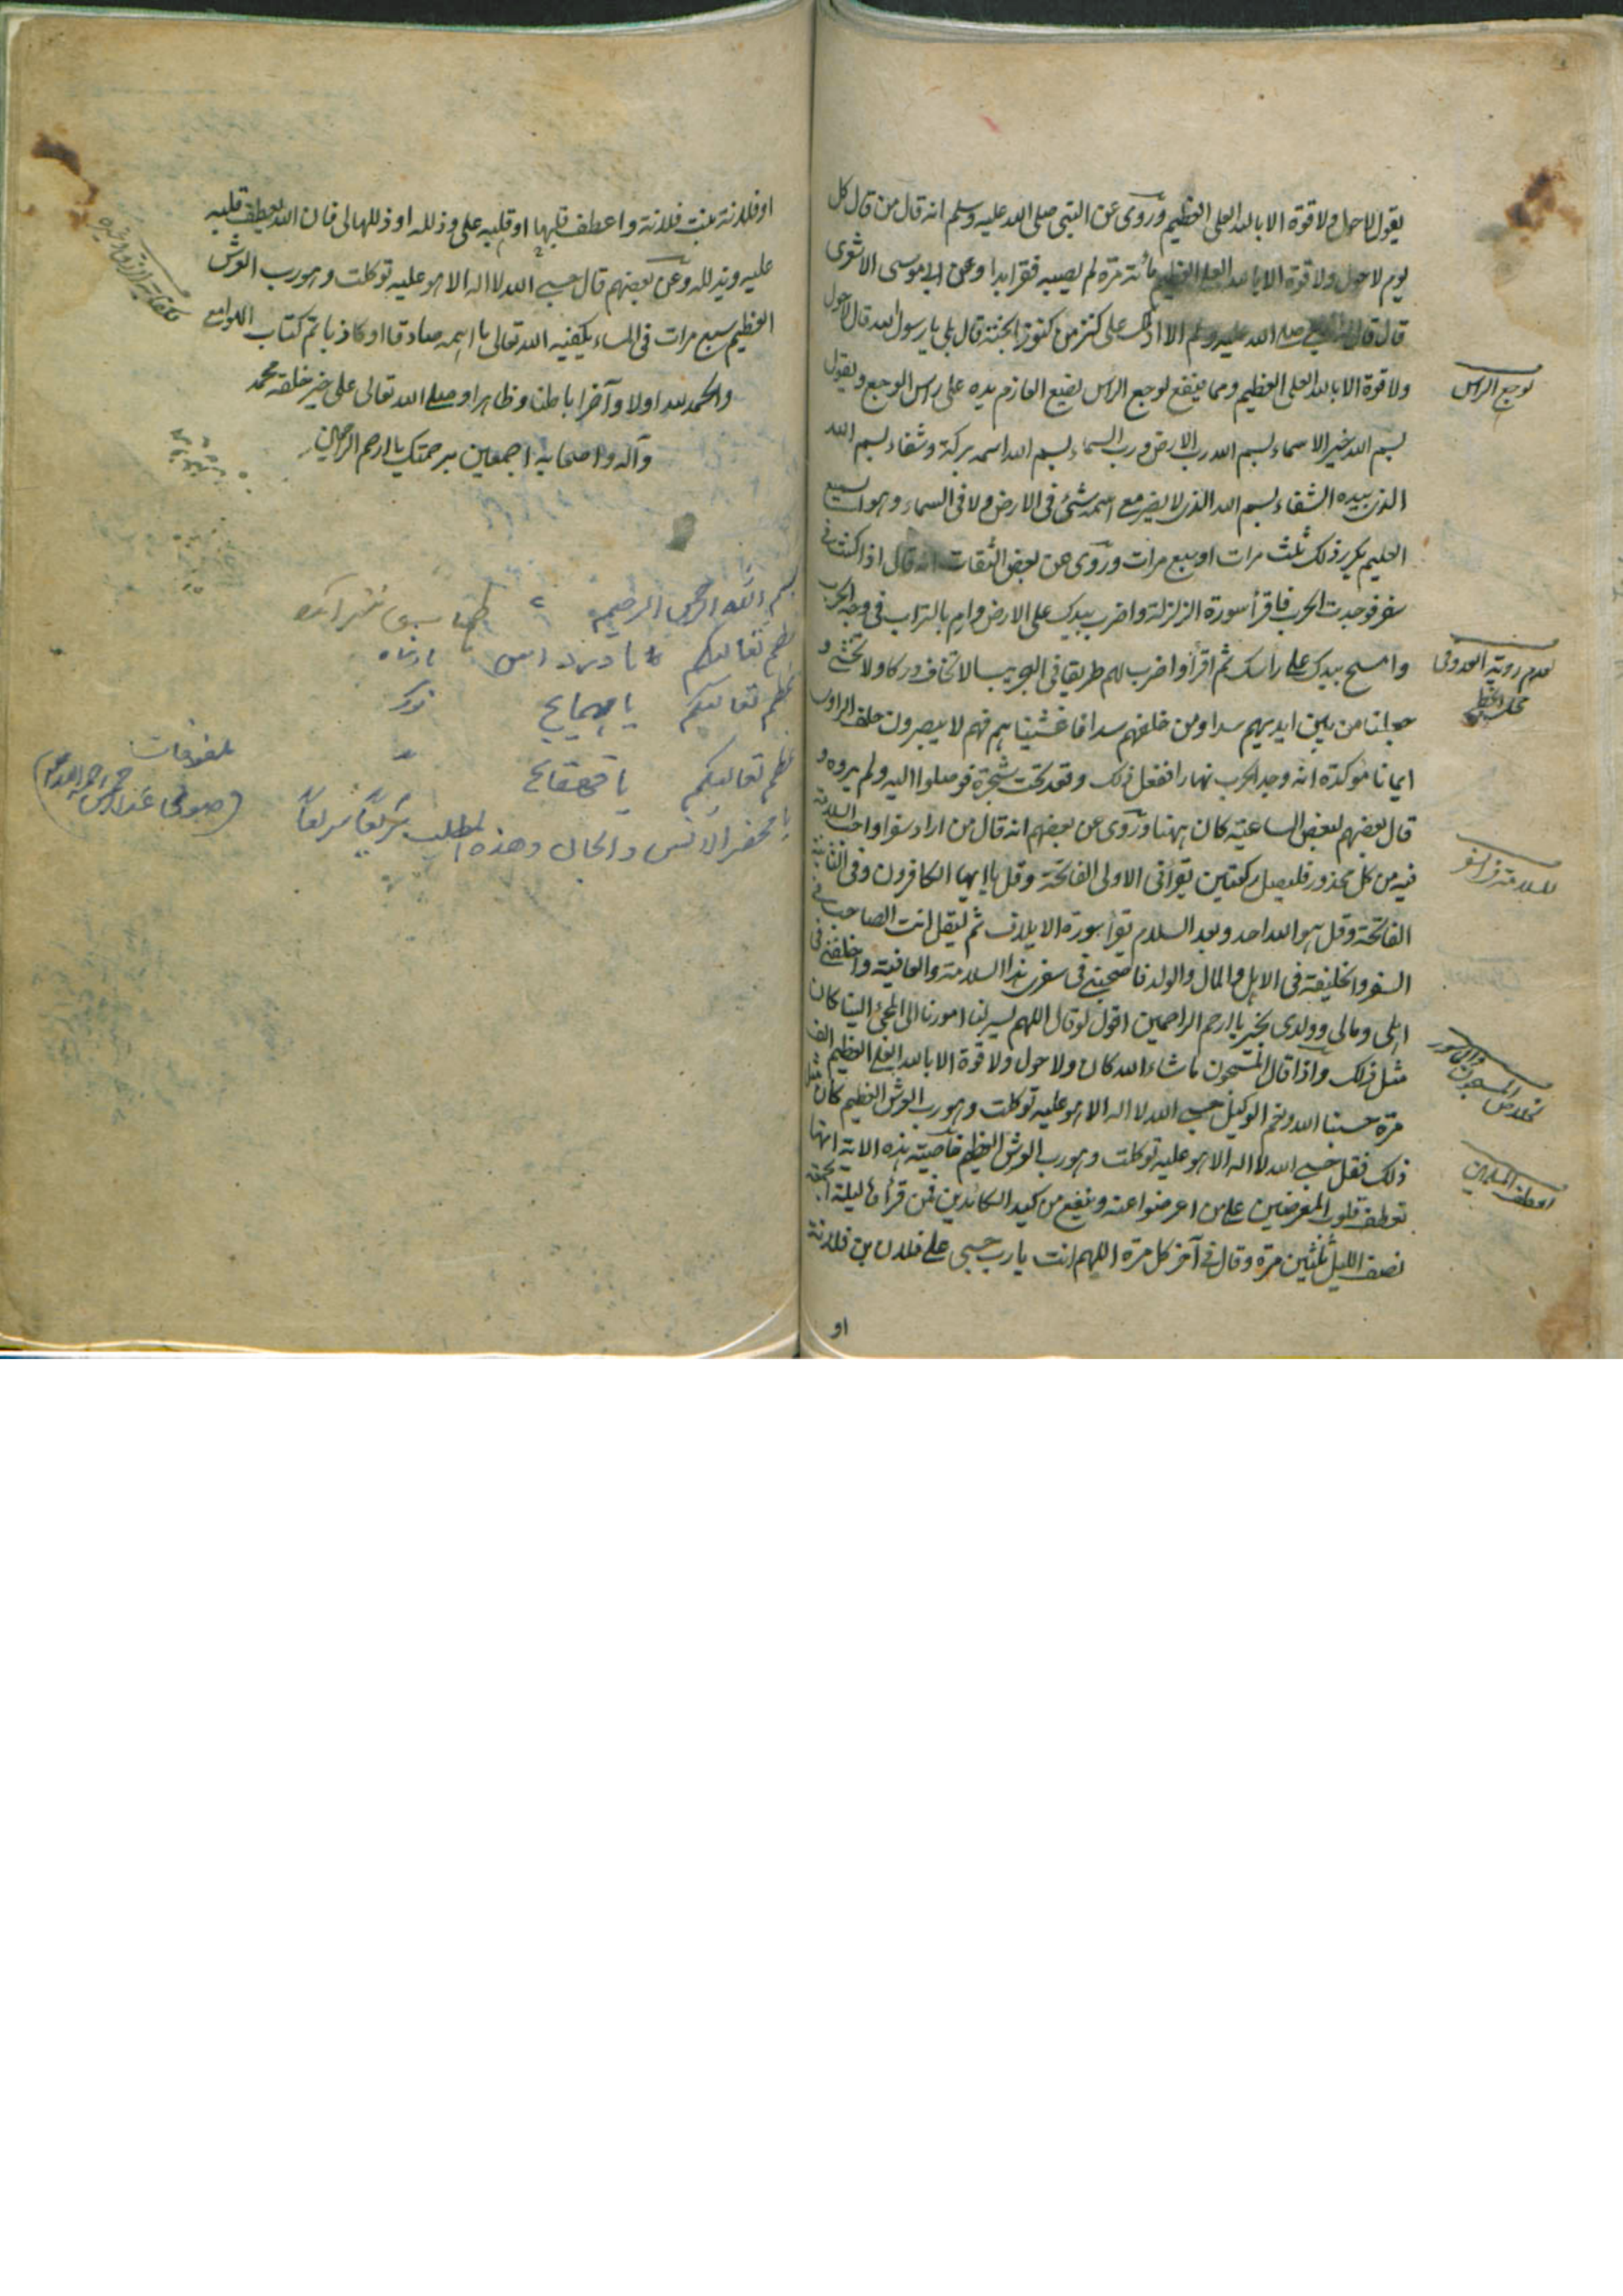 يقول لاحول ولا قوة الا بالله العلى العظيم وروى عن النبى صلى الله عليه وسلم انه قال من قال كل
يوم لاحول ولا قوة الا بالله العلى العظيم مائة مرة لم يصيبه فقر ابدا وعن ابى موسى الاشعرى
قال قال صلى الله عليه وسلم الا ادلك على كنز من كنوز الجنة قال بلى يا رسول الله قال لاحول
ولا قوة الا بالله العلى العظيم ومما ينفع لوجع الراس يضع العازم يده على راس الوجع ويقول
لوجع الراس
بسم الله خير الاسماء بسم الله رب الارض ورب السماء بسم الله اسمه بركة وشفاء بسم الله
الذى بيده الشفاء بسم الله الذى لا يضر مع اسمه شئ فى الارض ولا فى السماء وهو السميع
العليم يكرر ذلك ثلث مرات او سبع مرات وروى عن بعض الثقات انه قال اذا كنت فى
سفر فوجدت الحرب فاقرأ سورة الزلزلة واضرب بيدك على الارض وارم بالتراب فى وجه الحرب
وامسح بيدك على رأسك ثم اقرأ واضرب لهم طريقا فى البحر يبسا لا تخاف دركا ولا تخشى و
لعدم روية العدو فى
جعلنا من بين ايديهم سدا ومن خلفهم سدا فاغشيناهم فهم لا يبصرون حلف الراوى
ايمانا مؤكدة انه وجد الحرب نهارا ففعل ذلك وقعد تحت شجرة فوصلوا اليه ولم يروه و
قال بعضهم لبعض الساعة كان ههنا وروى عن بعضهم انه قال من اراد سفرا واحب السلامة
فيه من كل محذور فليصل ركعتين يقرأ فى الاولى الفاتحة وقل يا ايها الكافرون وفى الثانية
للسلامة فى السفر
الفاتحة وقل هو الله احد وبعد السلام يقرأ سورة الايلاف ثم ليقل انت الصاحب فى
السفر والخليفة فى الاهل والمال والولد فاصحبنى فى سفرى هذا السلامة والعافية واخلفنى فى
اهلى ومالى وولدى بخير يا ارحم الراحمين اقول لو قال اللهم يسر لنا امورنا الى المجئ الينا كان
مثل ذلك واذا قال المسجون ما شاء الله كان ولا حول ولا قوة الا بالله العلى العظيم الف
لخلاص المسجون
مرة حسبنا الله ونعم الوكيل حسبى الله لا اله الا هو عليه توكلت وهو رب العرش العظيم كان مثل
ذلك فقل حسبى الله لا اله الا هو عليه توكلت وهو رب العرش العظيم خاصية هذه الاية انها
تعطف قلوب المعرضين على من اعرضوا عنه وينفع من كيد الكائدين فمن قرأها ليلة الجمعة
نصف الليل ثلثين مرة وقال فى آخر كل مرة اللهم انت يا رب حسبى على فلان بن فلانة
او
او فلانة بنت فلانة واعطف قلبها او قلبه على وذلله او ذللها لى فان الله يعطف قلبه
عليه ويذلله وعن بعضهم قال حسبى الله لا اله الا هو عليه توكلت وهو رب العرش
العظيم سبع مرات فى المساء يكفيه الله تعالى ما اهمه صادقا او كاذبا تم كتاب اللوامع
والحمد لله اولا وآخرا باطنا وظاهرا وصلى الله تعالى على خير خلقه محمد
وآله واصحابه اجمعين برحمتك يا ارحم الراحمين
بسم الله الرحمن الرحيم
ملفوظات